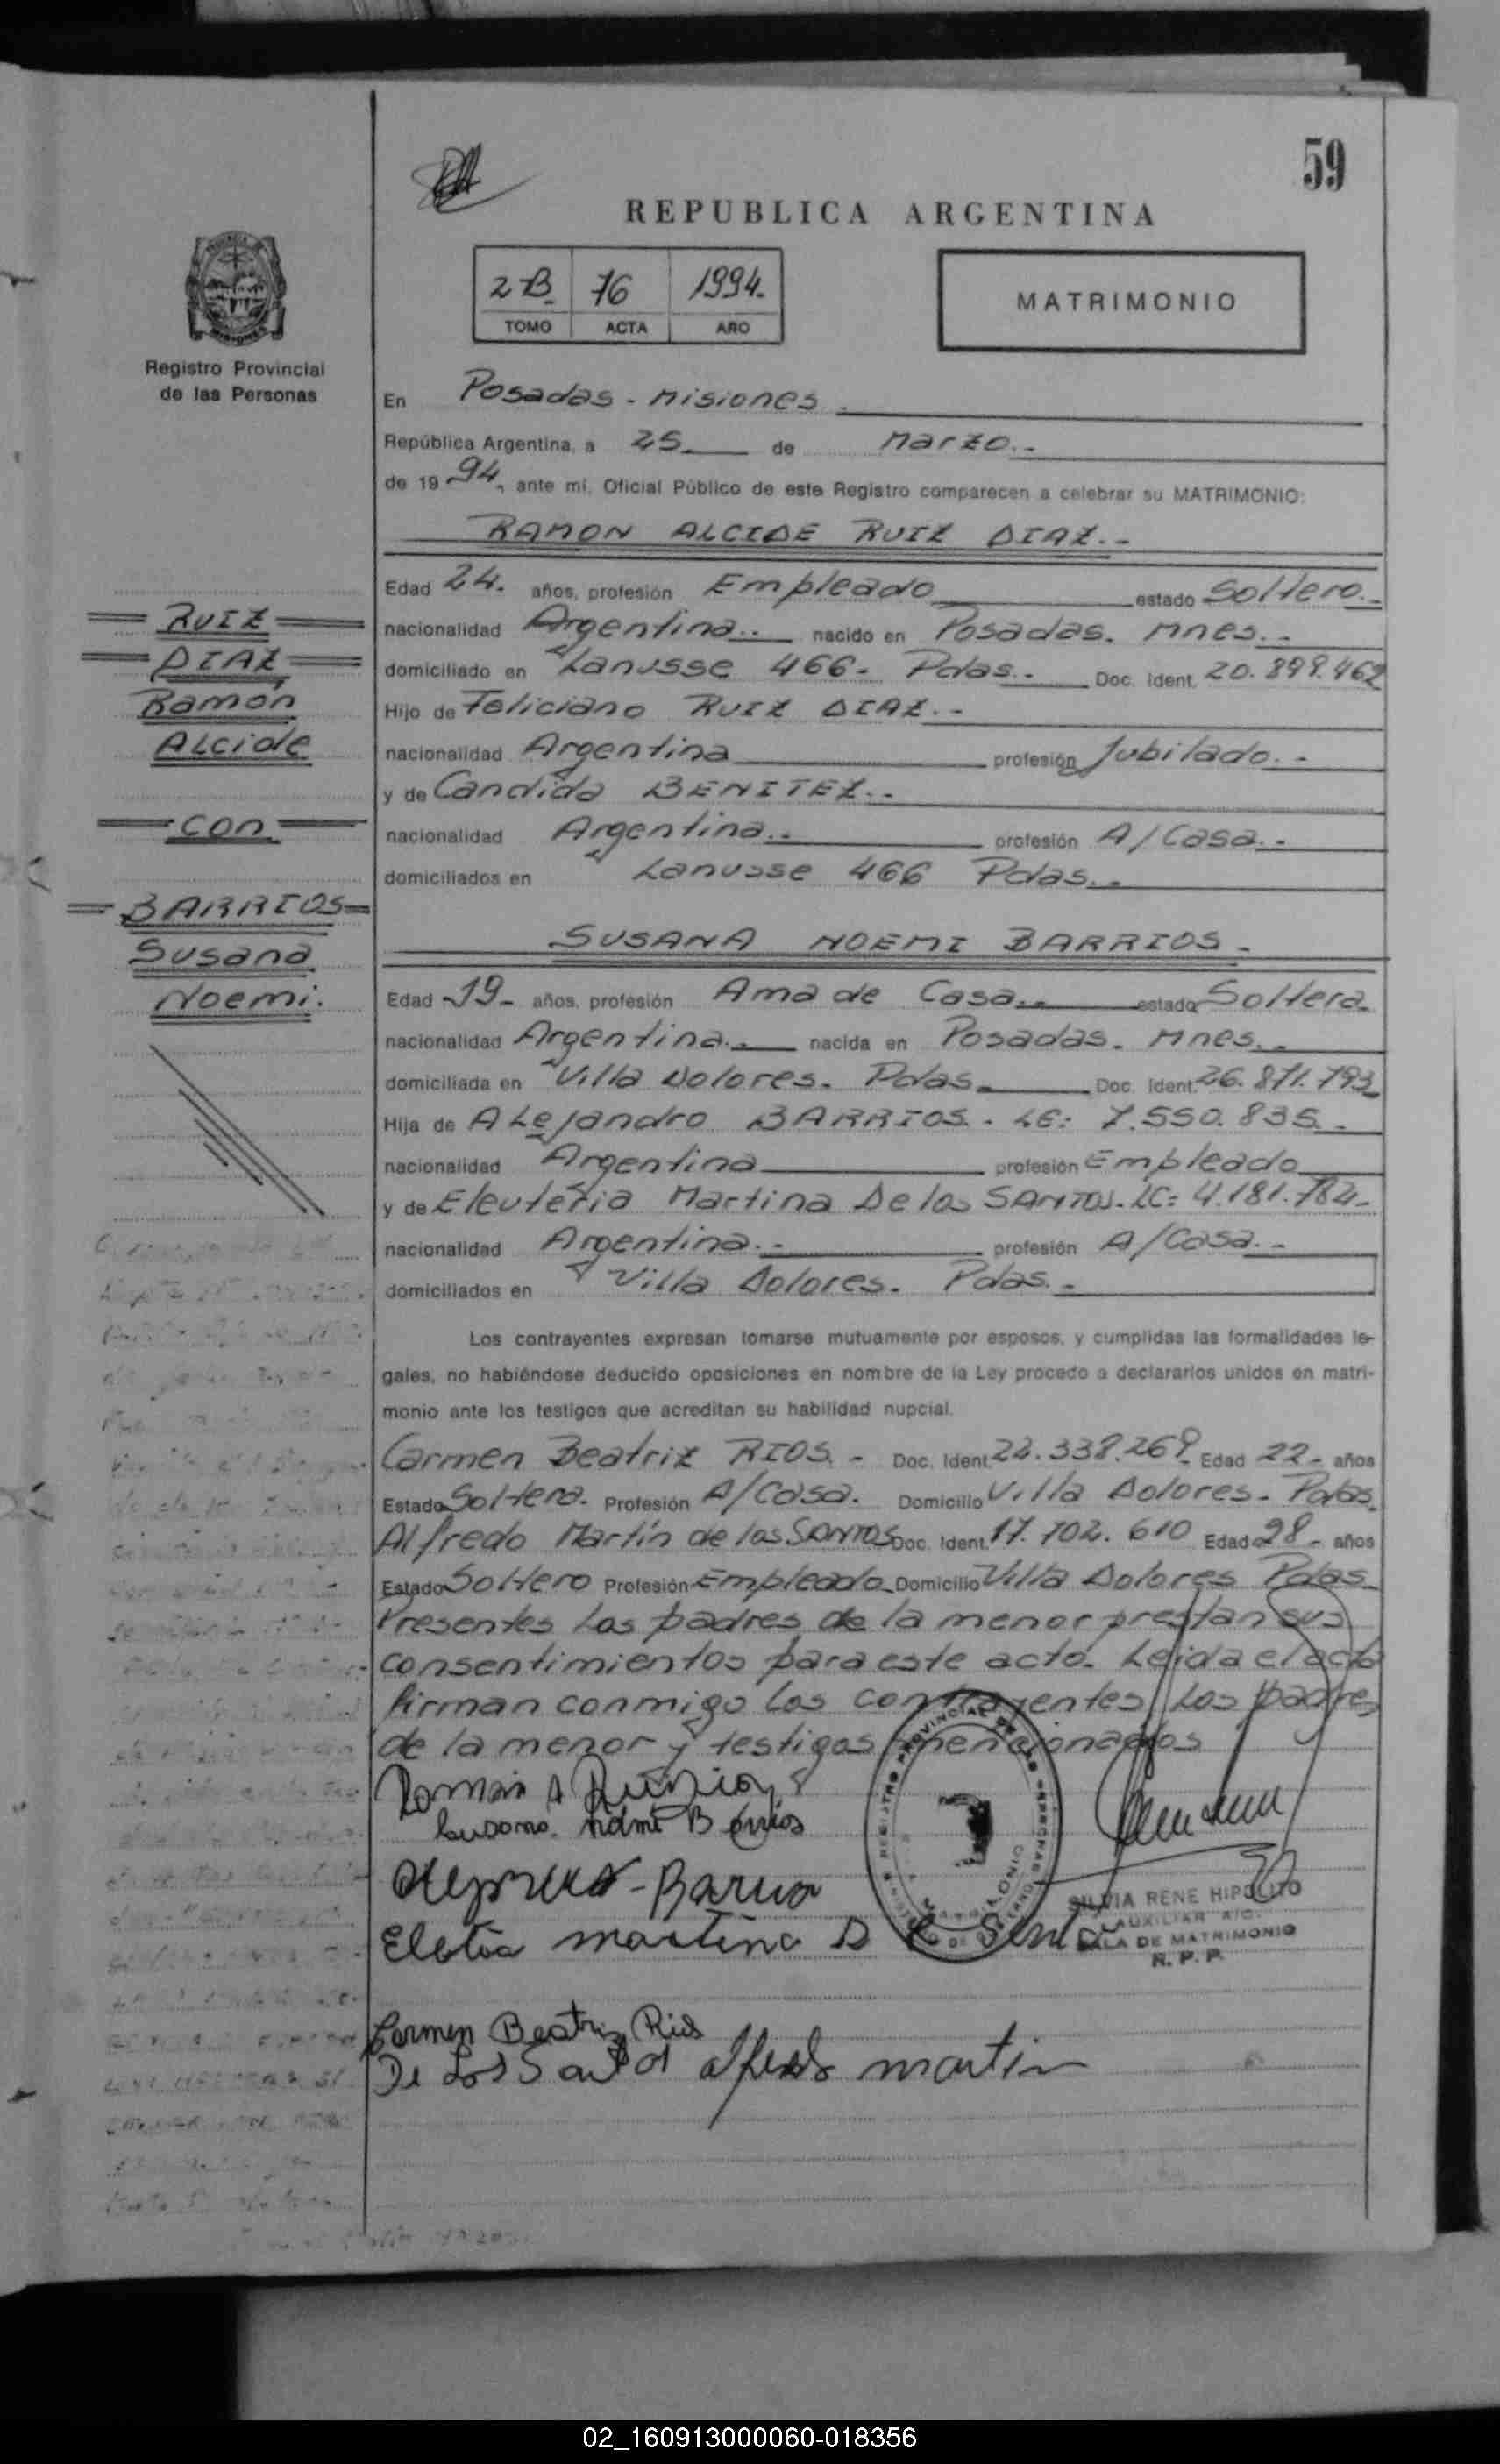 59
REPUBLICA ARGENTINA
2 B. 76 1994.
TOMO ACTA AÑO
MATRIMONIO
Registro Provincial
de las Personas
En Posadas - Misiones.
República Argentina, a 25 de Marzo.-
de 19 94, ante mí, Oficial Público de este Registro comparecen a celebrar su MATRIMONIO:
RAMON ALCIDE RUIZ DIAZ.-
Edad 24. años, profesión Empleado estado Soltero.-
nacionalidad Argentina.- nacido en Posadas. Mnes.-
domiciliado en Lanusse 466. Pdas.- Doc. Ident. 20.899.462
Hijo de Feliciano RUIZ DIAZ.-
nacionalidad Argentina profesión Jubilado.-
y de Candida BENITEZ.-
nacionalidad Argentina.- profesión A/Casa.-
domiciliados en Lanusse 466 Pdas.-
RUIZ
DIAZ
Ramón
Alcide
con
BARRIOS
Susana
Noemi.
SUSANA NOEMI BARRIOS.-
Edad 19- años, profesión Ama de Casa.- estado Soltera.
nacionalidad Argentina.- nacida en Posadas. Mnes.-
domiciliada en Villa Dolores. Pdas. Doc. Ident. 26.871.793
Hija de Alejandro BARRIOS.- LE: 7.550.835.-
nacionalidad Argentina profesión Empleado
y de Eleuteria Martina De los SANTOS. LC: 4.181.784-
nacionalidad Argentina.- profesión A/Casa.-
domiciliados en Villa Dolores. Pdas.-
Los contrayentes expresan tomarse mutuamente por esposos, y cumplidas las formalidades le-
gales, no habiéndose deducido oposiciones en nombre de la Ley procedo a declararlos unidos en matri-
monio ante los testigos que acreditan su habilidad nupcial.
Carmen Beatriz RIOS.- Doc. Ident. 22.338.269 Edad 22- años
Estado Soltera. Profesión A/Casa. Domicilio Villa Dolores. Pdas.
Alfredo Martín de los SANTOS Doc. Ident. 17.702.610 Edad 28- años
Estado Soltero Profesión Empleado Domicilio Villa Dolores Pdas
Presentes los padres de la menor prestan sus
consentimientos para este acto. Leida el acta
firman conmigo los contrayentes, los padres
de la menor y testigos mencionados
Barrios
martina
SILVIA RENE HIPOLITO
AUXILIAR A/C.
SALA DE MATRIMONIO
R. P. P.
Carmen Beatriz Rios
De Los Santos alfredo martin
02_160913000060-018356